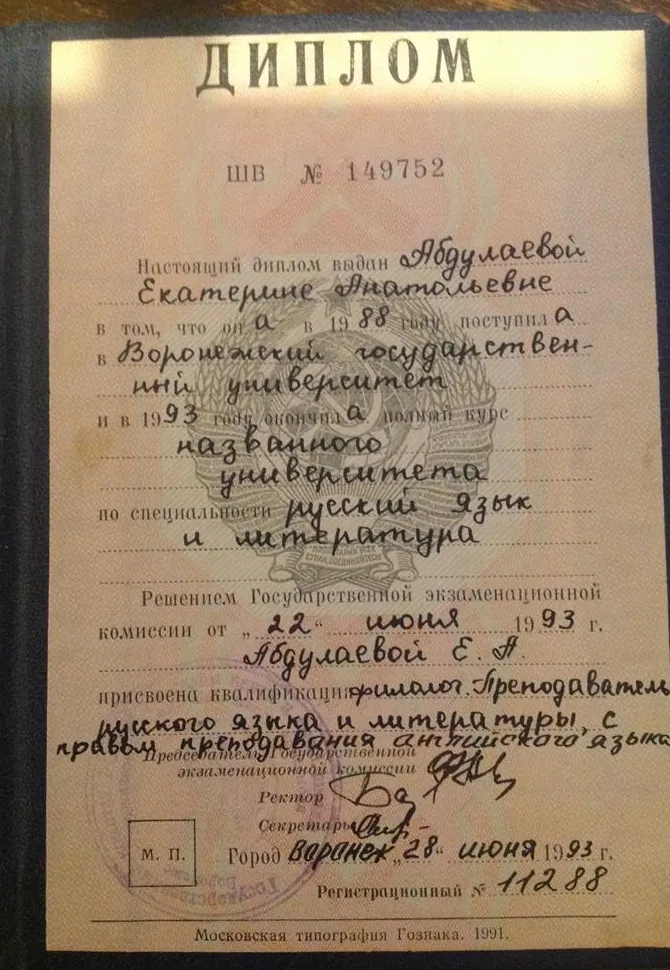 ДИПЛОМ
ШВ № 149752
Настоящий диплом выдан Абдулаевой
Екатерине Анатольевне
в том, что он а в 1988 году поступил а
в Воронежский государствен-
ный университет
и в 1993 году окончил а полный курс
названного
университета
по специальности русский язык
и литература
Решением Государственной экзаменационной
комиссии от „22“ июня 1993 г.
Абдулаевой Е. А.
присвоена квалификация филолог. Преподаватель
русского языка и литературы, с
правом преподавания английского языка
Председатель Государственной
экзаменационной комиссии
Ректор
Секретарь
М. П.
Город Воронеж „28“ июня 1993 г.
Регистрационный № 11288
Московская типография Гознака. 1991.